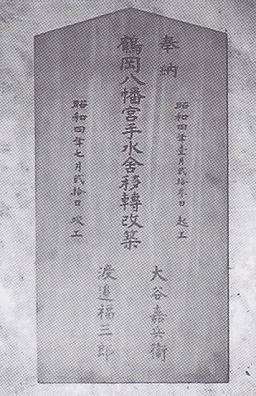 奉納
昭和四年壹月貳拾参日 起工
鶴岡八幡宮手水舎移轉改築
昭和四年七月貳拾日 竣工
大谷嘉兵衛
渡邉福三郎